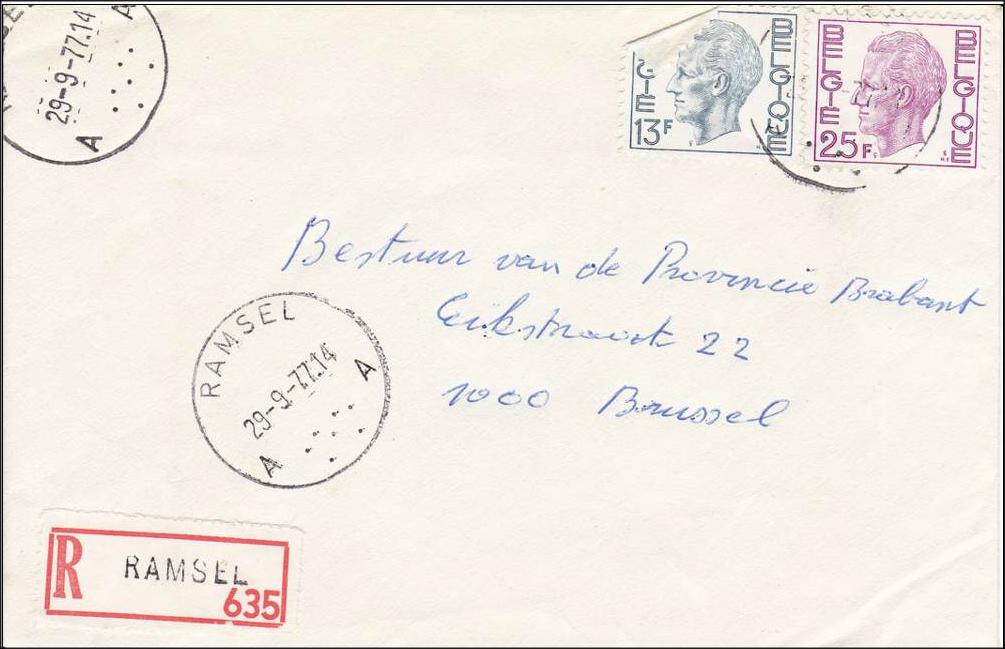 29-9-77.14
A
A
BELGIQUE
GIË
13F
BELGIË
BELGIQUE
25F
Bestuur van de Provincie Brabant
Eikstraat 22
1000 Brussel
RAMSEL
29-9-77.14
A
A
R RAMSEL
635